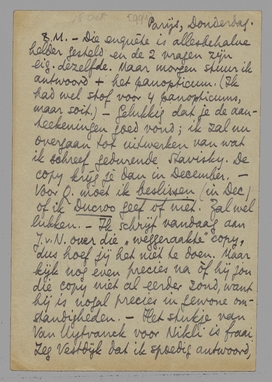 Parijs, Donderdag.
B.M. – Die enquête is allesbehalve
helder gesteld en de 2 vragen zijn
eig. dezelfde. Maar morgen stuur ik
antwoord + het panopticum. (Ik
had wel stof voor 4 panopticums,
maar soit.) – Gelukkig dat je de aan-
teekeningen goed vond; ik zal nu
overgaan tot uitwerken van wat
ik schreef gedurende Stavisky. De
copy krijg je dan in December. –
Voor O. moet ik beslissen (in Dec.)
of ik Ducroo geef of niet. Zal wel
lukken. – Ik schrijf vandaag aan
J.v.N. over die "weggeraakte" copy,
dus hoef jij het niet te doen. Maar
kijk nog even precies na of hij jou
die copy niet al eerder zond, want
hij is nogal precies in gewone om-
standigheden. – Het stukje van
Van Uytvanck voor Nikli is fraai.
Zeg Vestdijk dat ik spoedig antwoord,